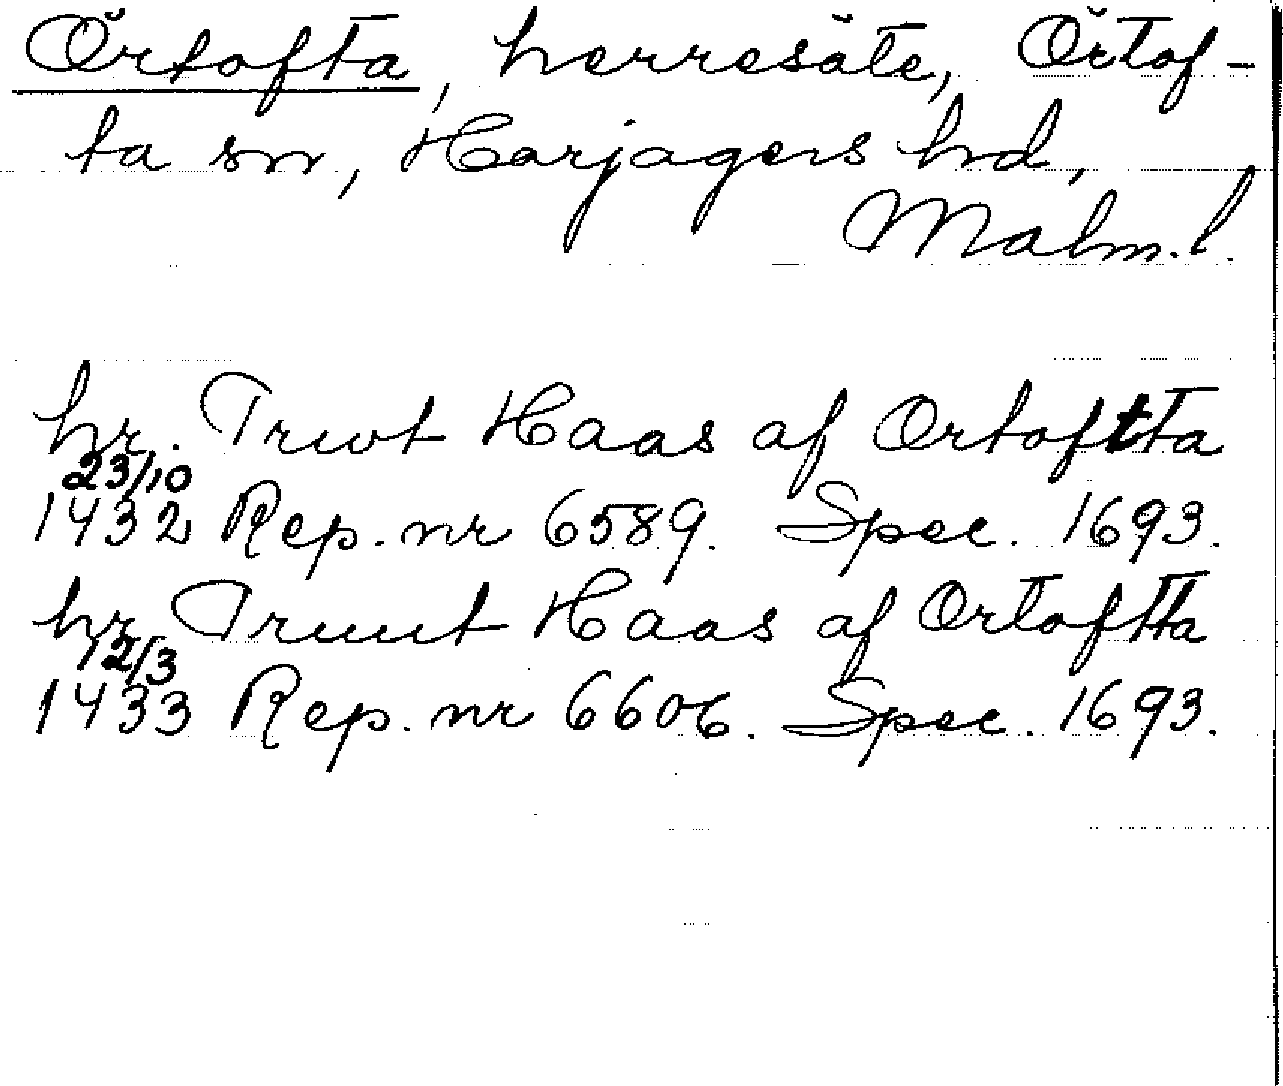 Örtofta, herresäte, Örtof-
ta sn, Harjagers hd,
Malm.l.
hr. Trwt Haas af Ortoftta
23/10
1432 Rep. nr 6589. Spec. 1693.
hr. Truut Haas af Ortoftta
12/3
1433 Rep. nr 6606. Spec. 1693.